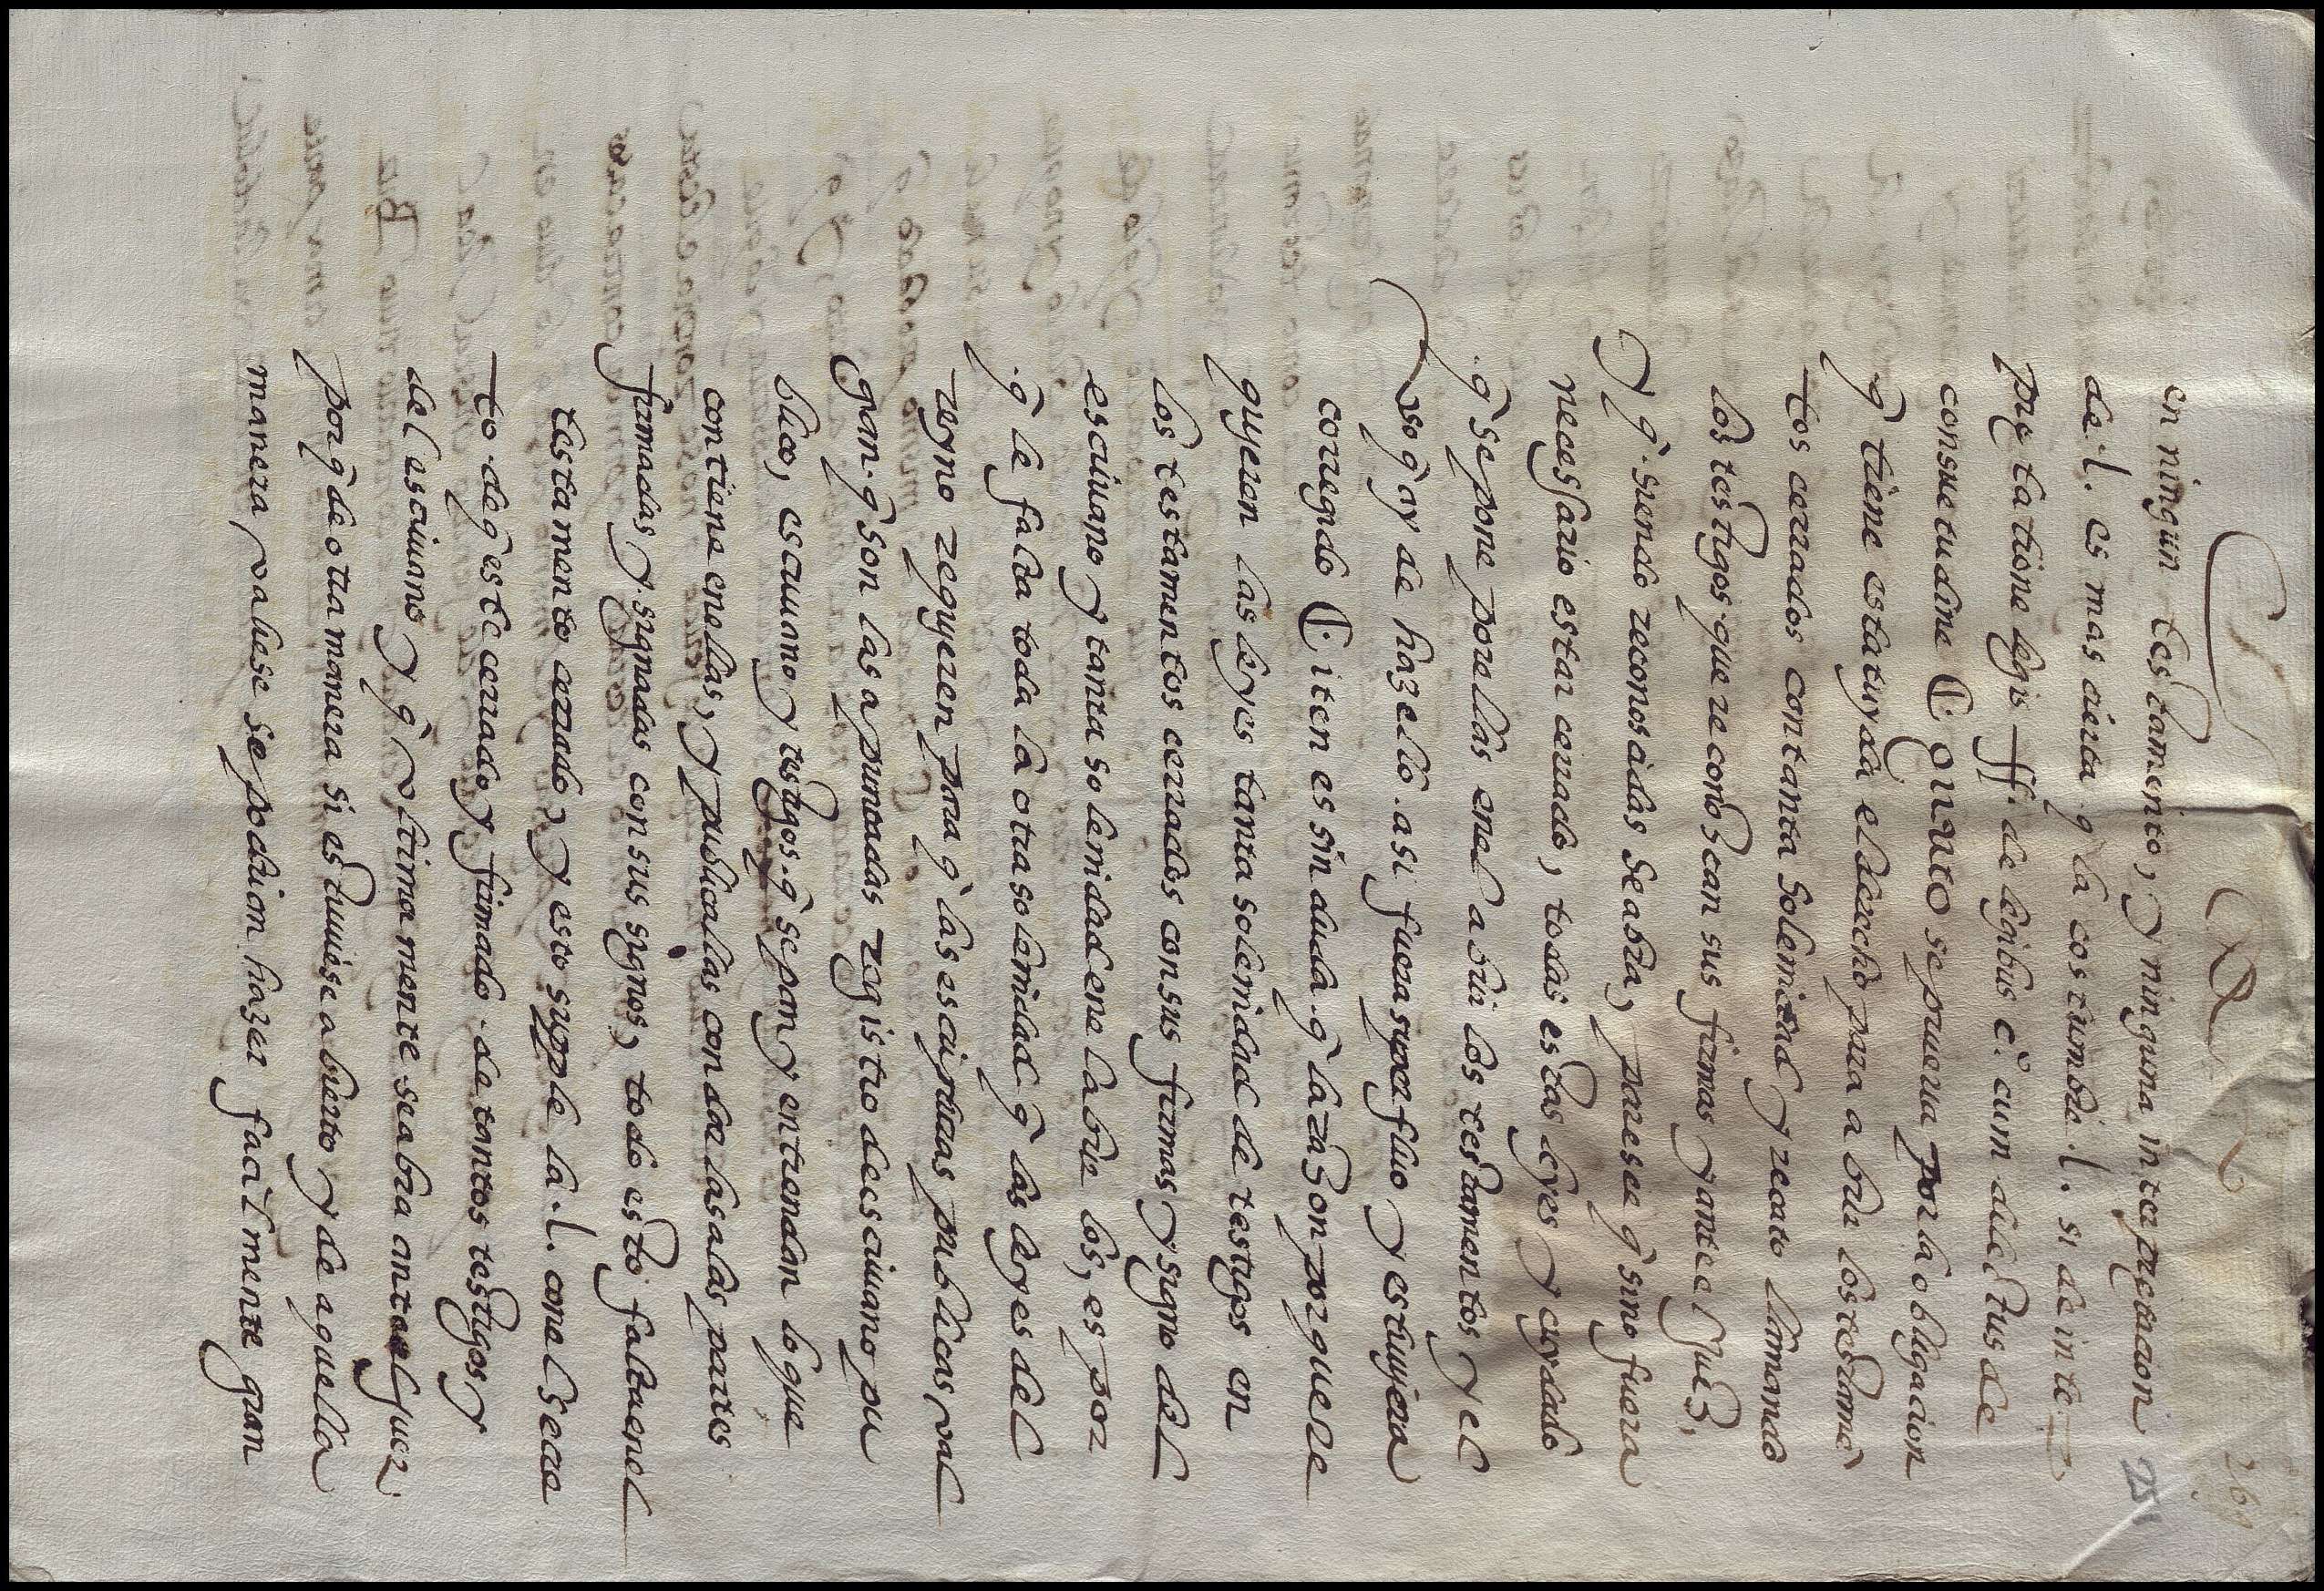 269
25
en ningun testamento, y ninguna interp̃tacion
de .l. es mas cierta q̃ la costumbre .l. si de inte
p̃tatione legis ff. de legibus c.º cum dilectus de
consuetudine ¶ quarto se prueua por la obligacion
q̃ tiene estatuyda el derecho para abrir los testamẽ
tos cerrados con tanta solemidad y recato llamando
los testigos que reconoscan sus firmas y ante el Juez,
y q̃ siendo reconosçidas se abra, paresce q̃ sino fuera
necessario estar cerrado, todas estas leyes y cuydado
q̃ se pone por ellas en el abrir los testamentos y el
uso q̃ ay de hazello asi fuera superfluo y estuuiera
corregido ¶ iten es sin duda q̃ la razon porque re
quyeren las leyes tanta solemidad de testigos en
los testamentos cerrados con sus firmas y signo del
escriuano y tanta solemidad en el abrir los, es por
q̃ le falta toda la otra solemidad q̃ las leyes del
reyno requyeren para q̃ las escripturas publicas val
gan q̃ son las apuntadas registro de escriuano pu
blico, escriuano y testigos q̃ sepan y entiendan lo que
contiene en ellas, y publicallas con dar las a las partes
firmadas y signadas con sus signos, todo esto falta en el
testamento cerrado, y esto supple la .l. con el secre
to de q̃ este cerrado y firmado de tantos testigos y
del escriuano y q̃ ultimamente se abra ante el juez
porq̃ de otra manera si estuuiese abierto y de aquella
manera valiese se podrian hazer facilmente gran